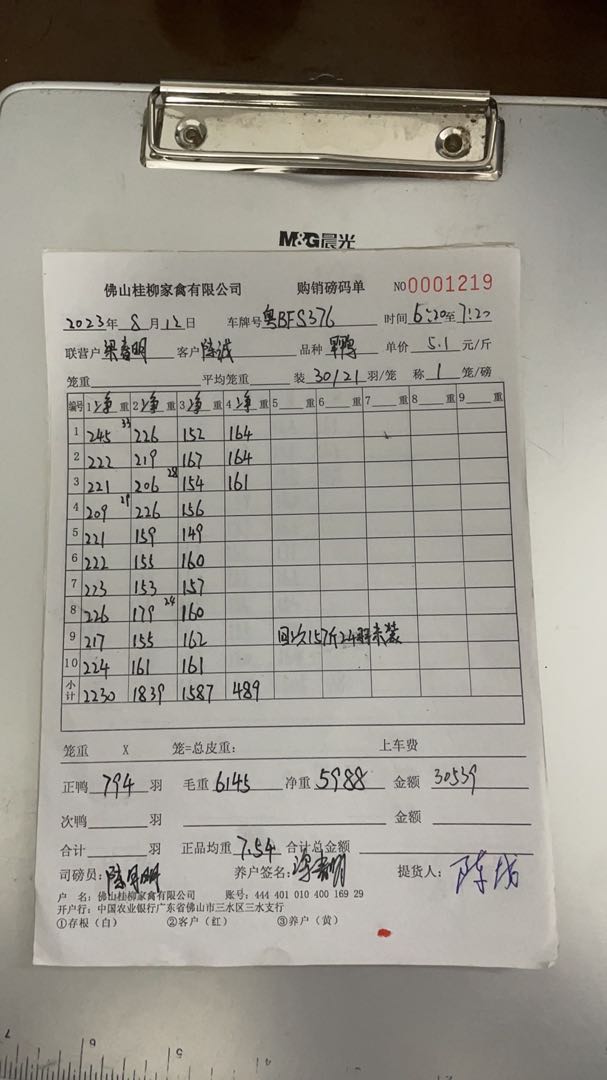 M&G晨光
佛山桂柳家禽有限公司 购销磅码单 NO 0001219
2023年 8月12日 车牌号 粤BFS376 时间 6:20至7:20
联营户 客户 陈诚 品种 单价 5.1 元/斤
笼重 平均笼重 装 30/21 羽/笼 称 1 笼/磅
编号 1 净重 2 净重 3 净重 4 净重 5 重 6 重 7 重 8 重 9 重
1 245 33 226 152 164
2 222 219 167 164
3 221 206 28 154 161
4 209 29 226 156
5 221 159 149
6 222 155 160
7 223 153 157
8 226 179 24 160
9 217 155 162 回次157斤24羽未装
10 224 161 161
小计 2230 1839 1587 489
笼重 X 笼=总皮重: 上车费
正鸭 794 羽 毛重 6145 净重 5988 金额 30539
次鸭 羽 金额
合计 羽 正品均重 7.54 合计总金额
司磅员: 养户签名: 提货人:
户 名: 佛山桂柳家禽有限公司 账号: 444 401 010 400 169 29
开户行: 中国农业银行广东省佛山市三水区三水支行
①存根(白) ②客户(红) ③养户(黄)
7 6 5